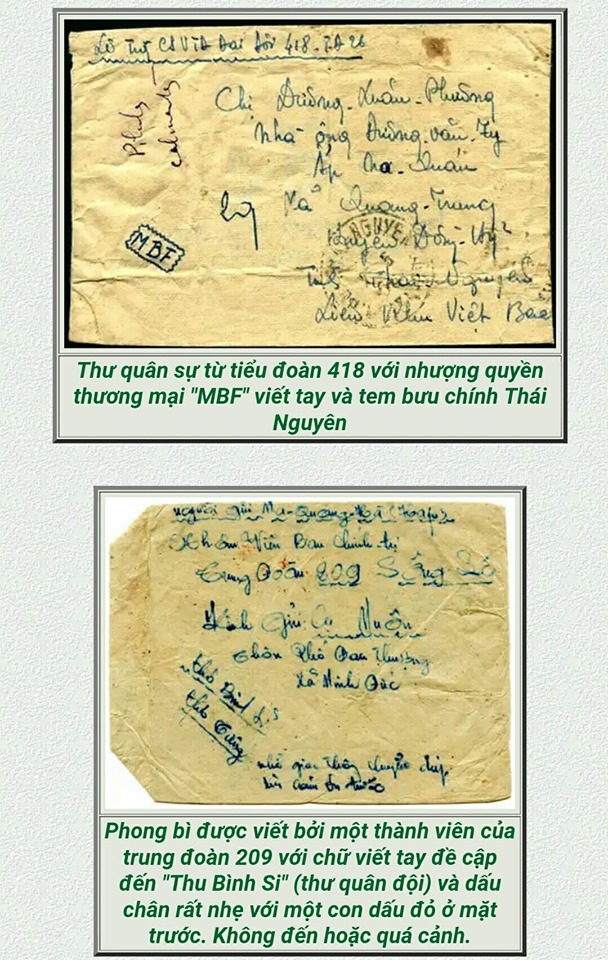 418
Chị Dương-Xuân-Phương
nhà ông Dương-văn-Ty
Ấp Na-Quán
Xã Quang-Trung
MBF
NGUYE
Huyện Đồng-Hỷ
Tỉnh Thái-Nguyên
Liên Khu Việt Bắc
Thư quân sự từ tiểu đoàn 418 với nhượng quyền
thương mại "MBF" viết tay và tem bưu chính Thái
Nguyên
người gửi Ma-Quang
Viên Ban Chính trị
Trung Đoàn 209 Sông Lô
Kính gửi: Cụ Muôn
thôn Phố Đan Thượng
Xã Minh Đức
thơ Binh Sĩ
nhờ giao thông chuyển
Phong bì được viết bởi một thành viên của
trung đoàn 209 với chữ viết tay đề cập
đến "Thu Bình Si" (thư quân đội) và dấu
chân rất nhẹ với một con dấu đỏ ở mặt
trước. Không đến hoặc quá cảnh.